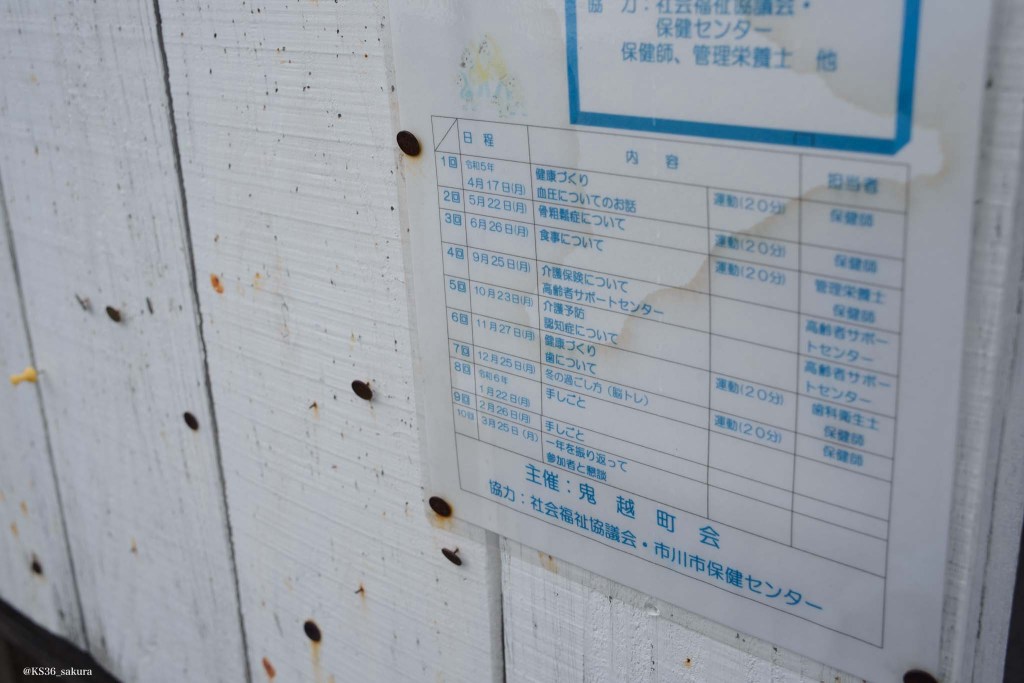 協　力：社会福祉協議会・
保健センター
保健師、管理栄養士　他
日 程
内　容
担当者
1回
令和5年
4月17日(月)
健康づくり
血圧についてのお話
運動(20分)
保健師
2回
5月22日(月)
骨粗鬆症について
運動(20分)
保健師
3回
6月26日(月)
食事について
運動(20分)
管理栄養士
4回
9月25日(月)
介護保険について
高齢者サポートセンター
保健師
高齢者サポー
トセンター
5回
10月23日(月)
介護予防
認知症について
高齢者サポー
トセンター
6回
11月27日(月)
健康づくり
歯について
運動(20分)
歯科衛生士
保健師
7回
12月25日(月)
冬の過ごし方（脳トレ）
運動(20分)
保健師
8回
令和6年
1月22日(月)
手しごと
9回
2月26日(月)
手しごと
10回
3月25日（月）
一年を振り返って
参加者と懇談
主催：鬼　越　町　会
協力：社会福祉協議会・市川市保健センター
@KS36_sakura